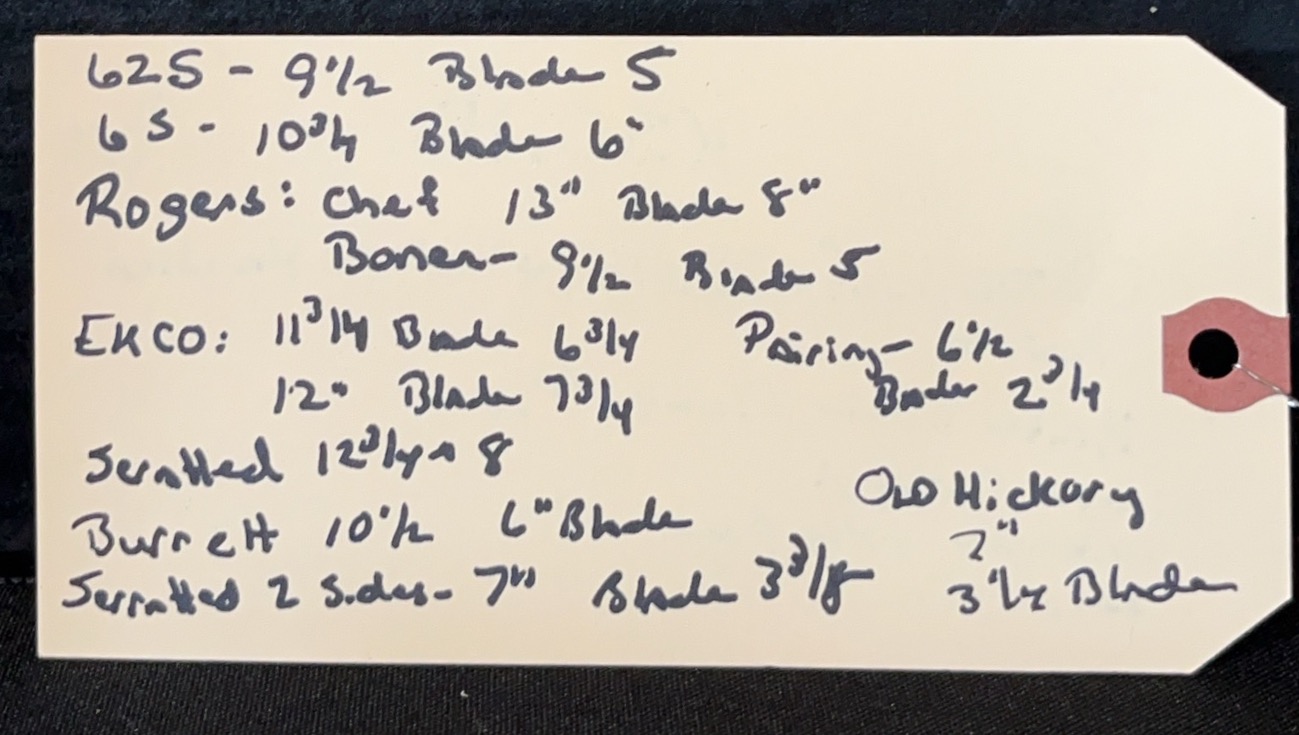 62S - 9 1/2 Blade 5
6S - 10 3/4 Blade 6"
Rogers: Chef 13" Blade 8"
Boner - 9 1/2 Blade 5
EKCO: 11 3/4 Blade 6 3/4
12" Blade 7 3/4
Pairing - 6 1/2
Blade 2 3/4
Serratted 12 3/4 8
Burrett 10 1/2 6" Blade
Serratted 2 Sides - 7" Blade 3 3/8
OLD Hickory
7"
3 1/4 Blade